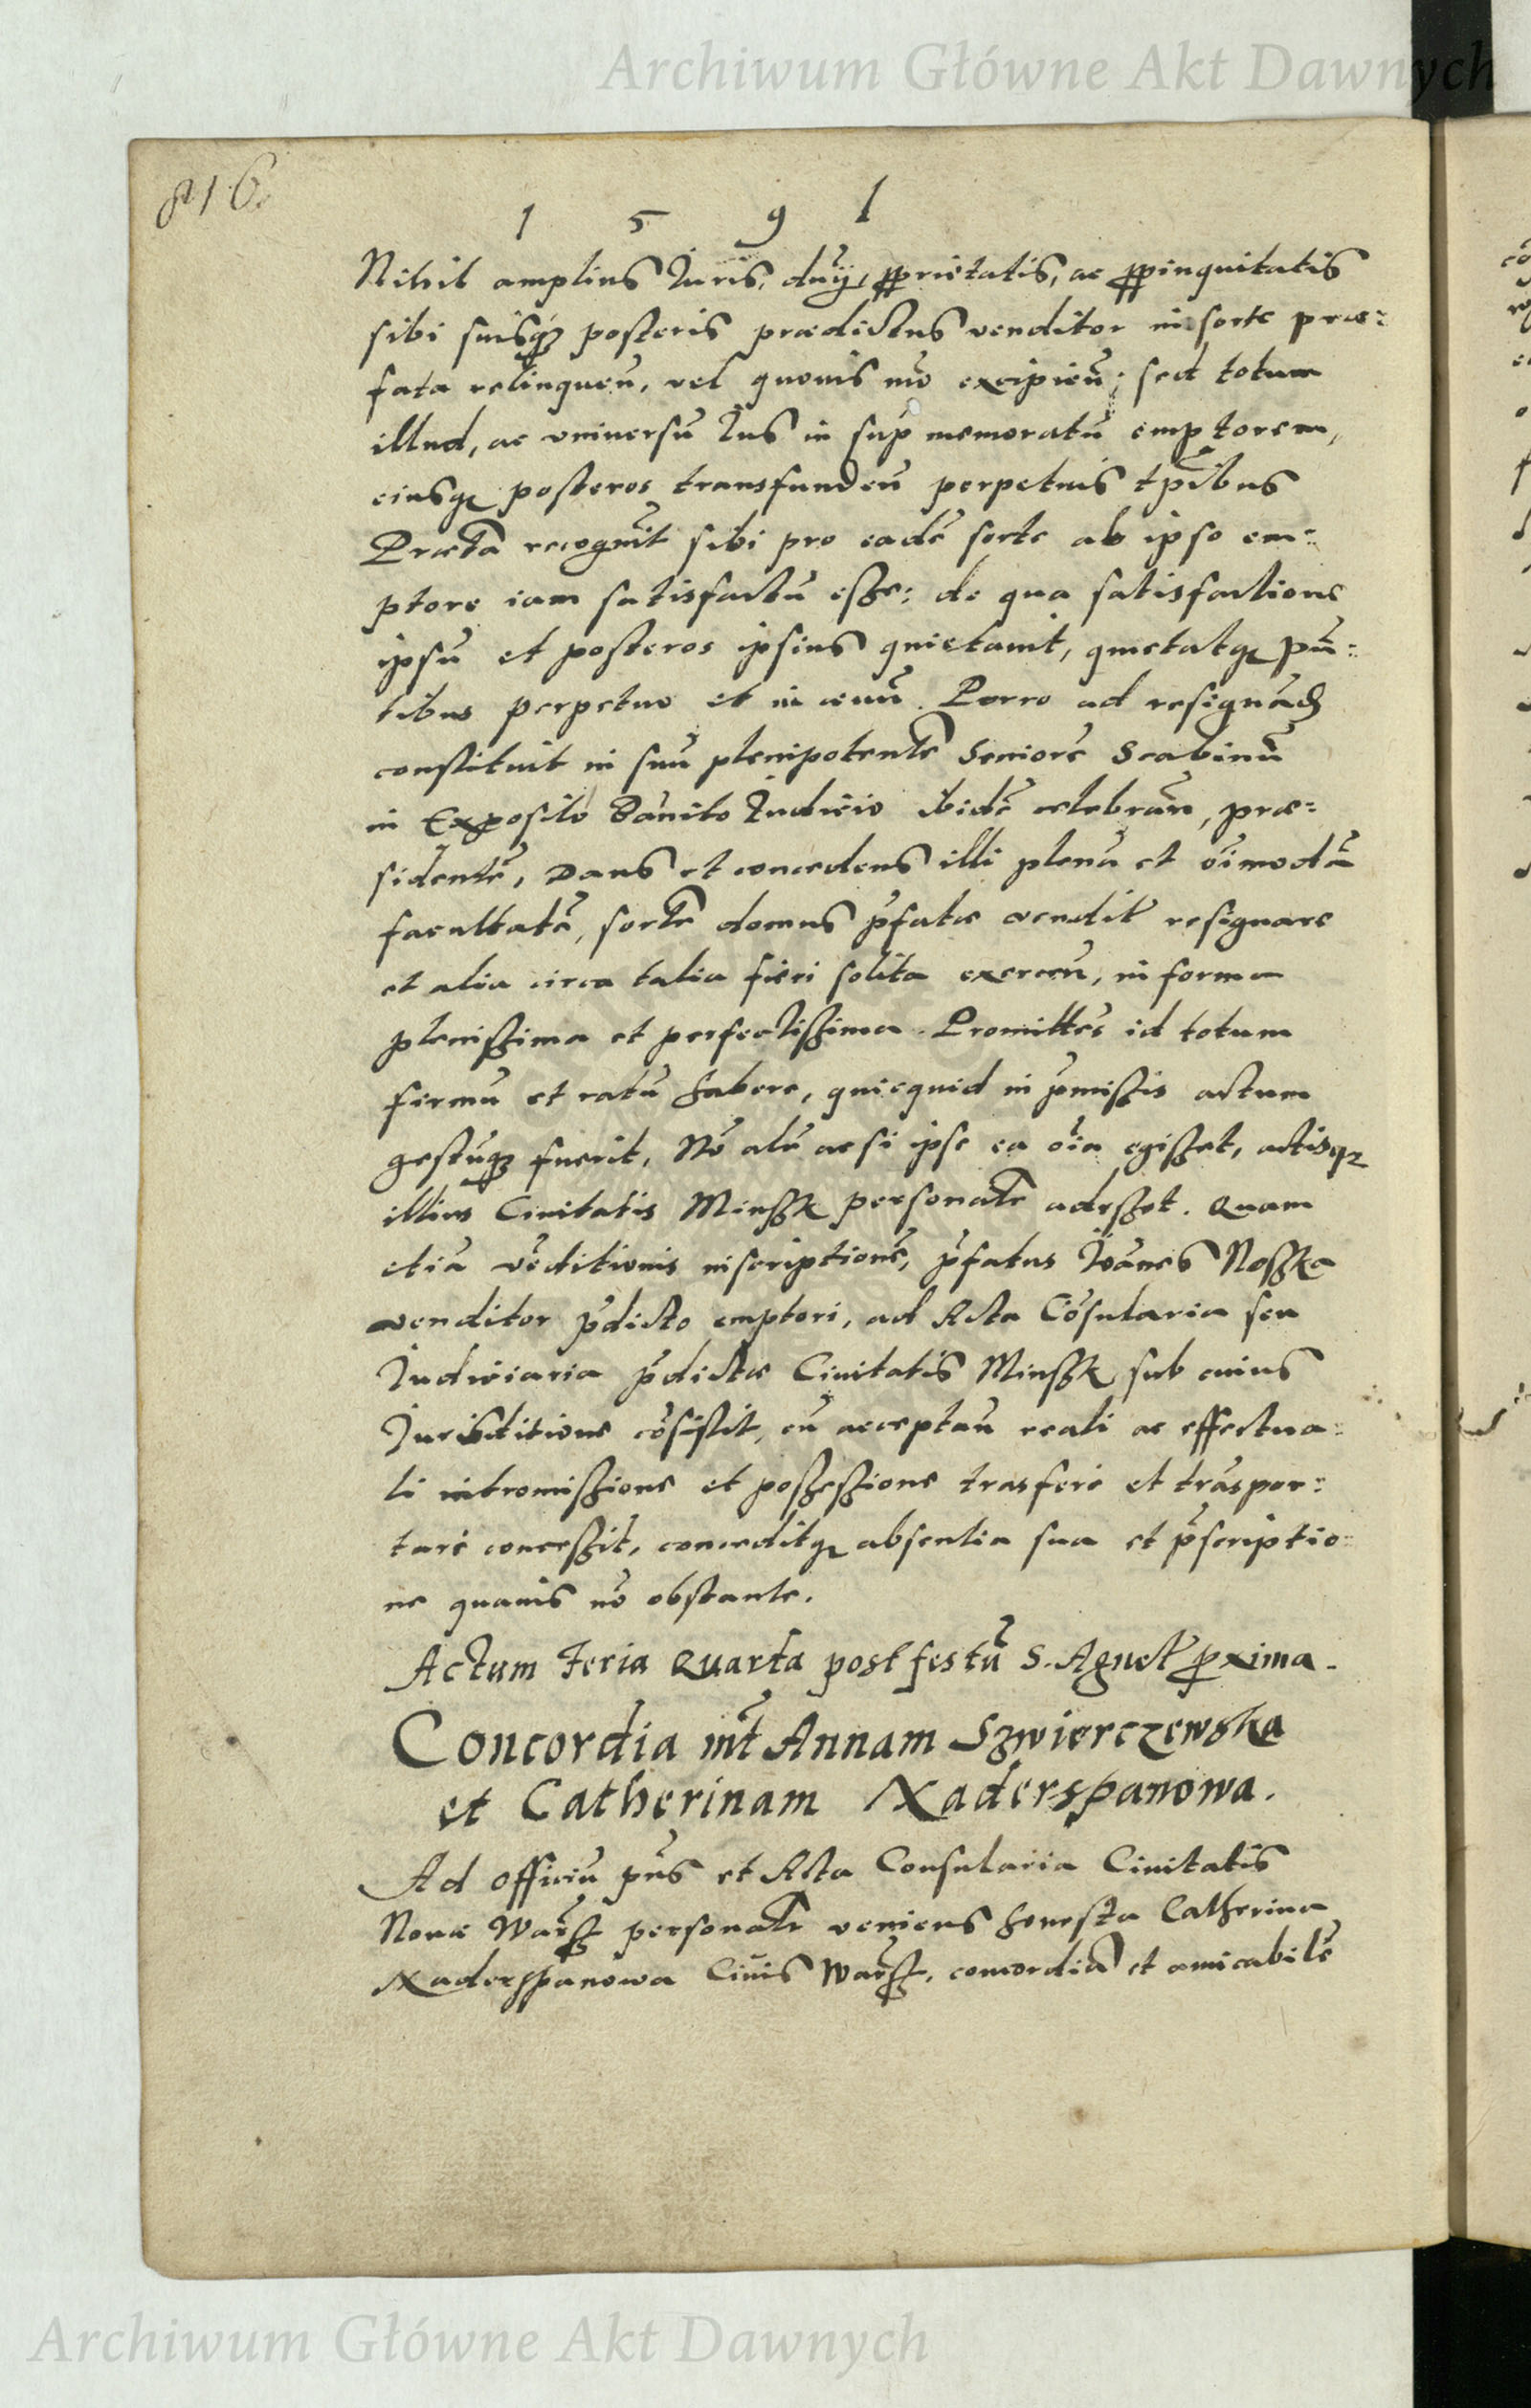 Archiwum Główne Akt Dawnych
816.
1 5 9 1
Nihil amplius Iuris, dnÿ, pprietatis, ac ppinquitatis
sibi suisq₃ posteris praedictus venditor in sorte prae:
fata relinquen̄, vel quouis mō excipien̄; sed totum
illud, ac vniversū Ius in sup memoratū emptorem,
eiusq₃ posteros transfunden̄ perpetuis tp̄ibus
Praeta recognit sibi pro eadē sorte ab ipso em:
ptore iam satisfactū esse: de qua satisfactione
ipsū et posteros ipsius quietauit, quietatq₃ pn̄:
tibus perpetuo et in aeuū. Porro ad resignād
constituit in suū plenipotentē Seniorē Scabinū
in Exposito Bānito Iudicio ibidē celebran̄, prae:
sidentē, Dans et concedens illi plenā et oīmodā
facultatē, sortē domus p̄fatae vendit̄ resignare
et alia circa talia fieri solita exercen̄, in forma
plenissima et perfectissima. Promittēs id totum
firmū et ratū habere, quicquid in p̄missis actum
gestūq₃ fuerit, Nō alr̄ ac si ipse ea oīa egisset, actisq₃
illius Ciuitatis Minssk personalr̄ adesset. Quam
etiā vēditionis inscriptionē, p̄fatus Ioānes Nosska
venditor p̄dicto emptori, ad Acta Cōsularia seu
Iudiciaria p̄dictae Ciuitatis Minssk sub cuius
Iurisditione cōsistit, cū acceptan̄ reali ac effectua:
li intromissione et possessione trasferē et trāspor:
tarē concessit, conceditq₃ absentia sua et p̄scriptio:
ne quauis nō obstante.
Actum Feria Quarta post festū S. Agnet̄ pxima.
Concordia int̄ Annam Szwierczewska
et Catherinam Xaderspanowa.
Ad officiū pn̄s et Acta Consularia Ciuitatis
Nouae Warss personalr̄ veniens honesta Catherina
Xaderspanowa Ciuis Warss, concordiā et amicabilē
Archiwum Główne Akt Dawnych